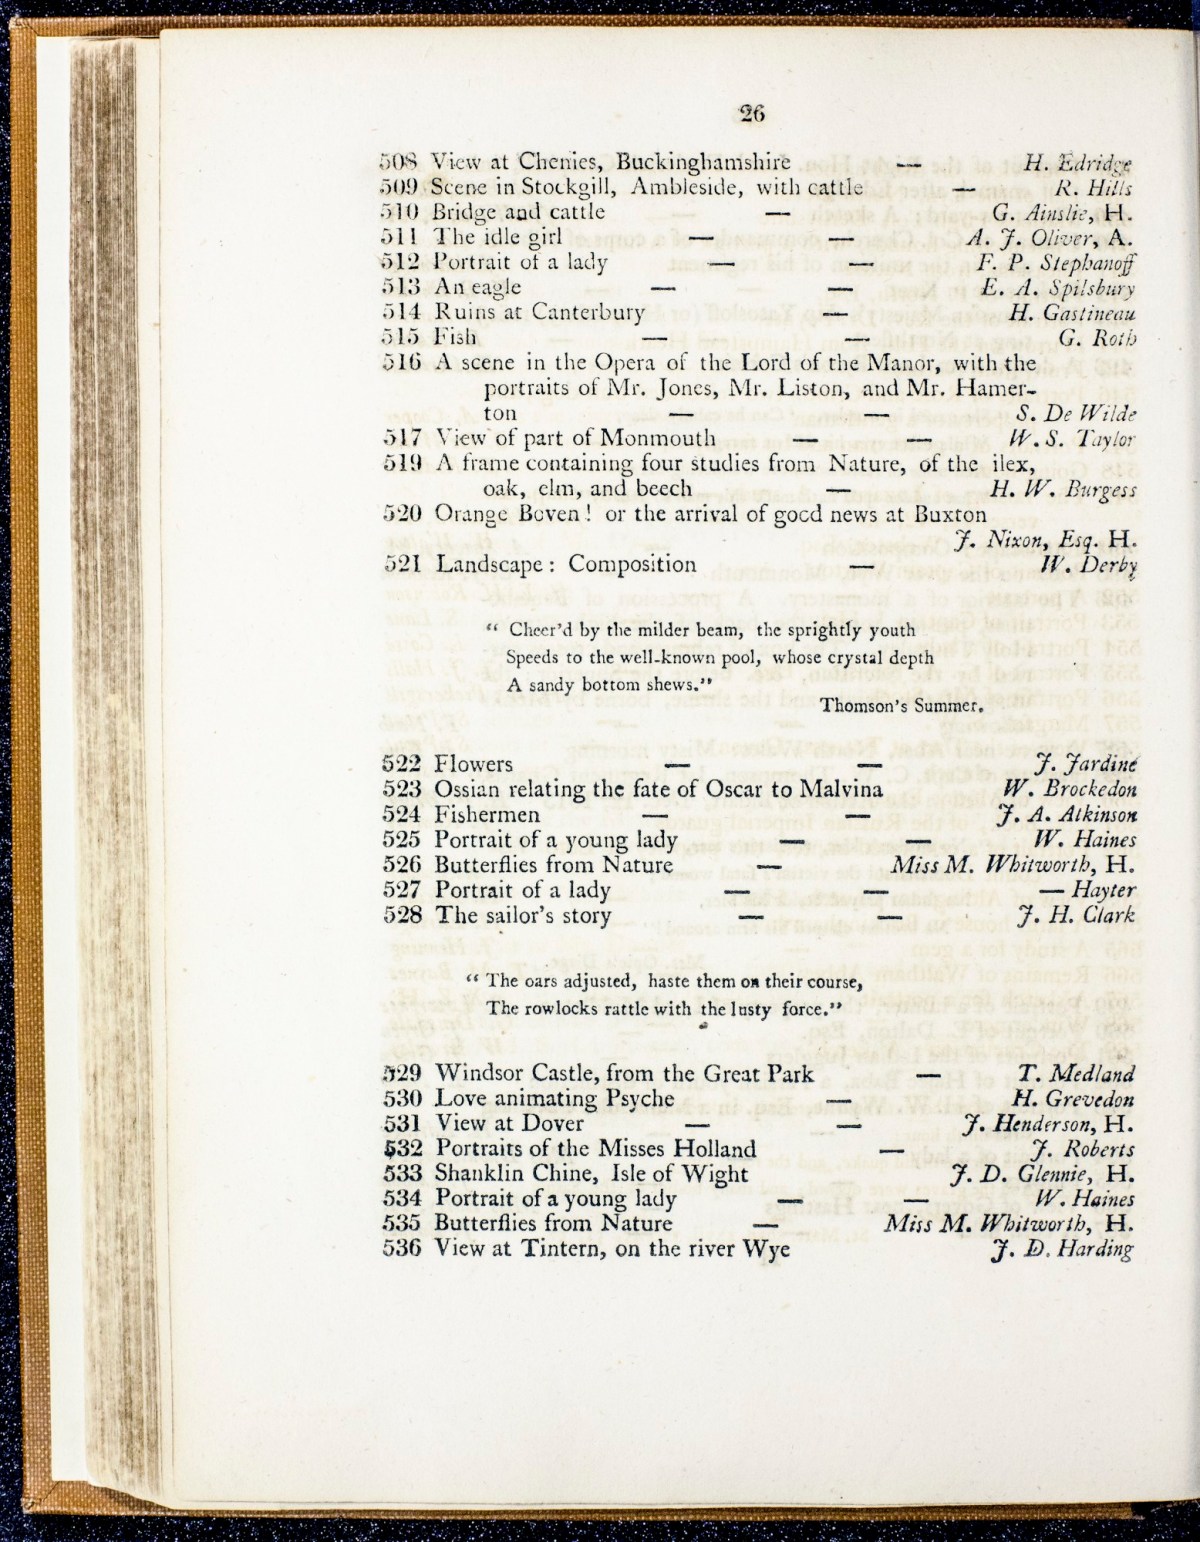 26
508 View at Chenies, Buckinghamshire — H. Edridge
509 Scene in Stockgill, Ambleside, with cattle — R. Hills
510 Bridge and cattle — G. Ainslie, H.
511 The idle girl — — A. J. Oliver, A.
512 Portrait of a lady — — F. P. Stephanoff
513 An eagle — — E. A. Spilsbury
514 Ruins at Canterbury — H. Gastineau
515 Fish — — G. Roth
516 A scene in the Opera of the Lord of the Manor, with the
portraits of Mr. Jones, Mr. Liston, and Mr. Hamer-
ton — — S. De Wilde
517 View of part of Monmouth — — W. S. Taylor
519 A frame containing four studies from Nature, of the ilex,
oak, elm, and beech — H. W. Burgess
520 Orange Boven! or the arrival of good news at Buxton
J. Nixon, Esq. H.
521 Landscape: Composition — W. Derby
“ Cheer’d by the milder beam, the sprightly youth
Speeds to the well-known pool, whose crystal depth
A sandy bottom shews.”
Thomson’s Summer.
522 Flowers — — J. Jardine
523 Ossian relating the fate of Oscar to Malvina W. Brockedon
524 Fishermen — — J. A. Atkinson
525 Portrait of a young lady — — W. Haines
526 Butterflies from Nature — Miss M. Whitworth, H.
527 Portrait of a lady — — — Hayter
528 The sailor’s story — — J. H. Clark
“ The oars adjusted, haste them on their course,
The rowlocks rattle with the lusty force.”
529 Windsor Castle, from the Great Park — T. Medland
530 Love animating Psyche — H. Grevedon
531 View at Dover — — J. Henderson, H.
532 Portraits of the Misses Holland — J. Roberts
533 Shanklin Chine, Isle of Wight J. D. Glennie, H.
534 Portrait of a young lady — — W. Haines
535 Butterflies from Nature — Miss M. Whitworth, H.
536 View at Tintern, on the river Wye J. D. Harding